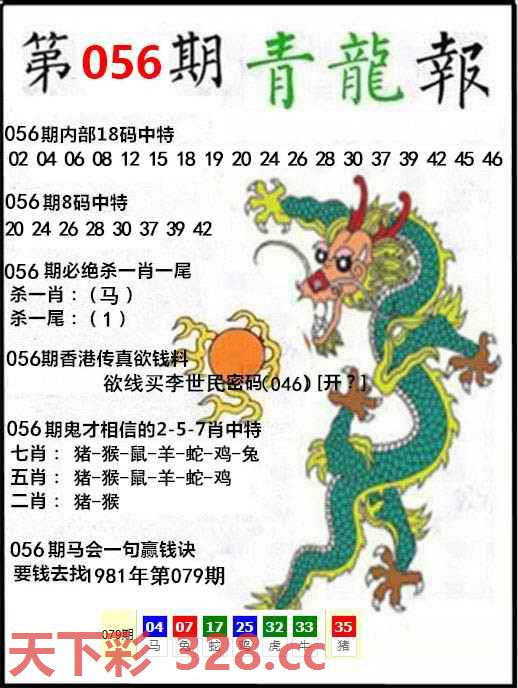 第056期 青龍報
056期内部18码中特
02 04 06 08 12 15 18 19 20 24 26 28 30 37 39 42 45 46
056期8码中特
20 24 26 28 30 37 39 42
056期必绝杀一肖一尾
杀一肖：（马）
杀一尾：（1）
056期香港传真欲钱料
欲线买李世民密码(046) [开?]
056期鬼才相信的2-5-7肖中特
七肖： 猪-猴-鼠-羊-蛇-鸡-兔
五肖： 猪-猴-鼠-羊-蛇-鸡
二肖： 猪-猴
056期马会一句赢钱诀
要钱去找1981年第079期
079期 04 07 17 25 32 33 35
马 兔 蛇 鸡 虎 牛 猪
天下彩 328.cc